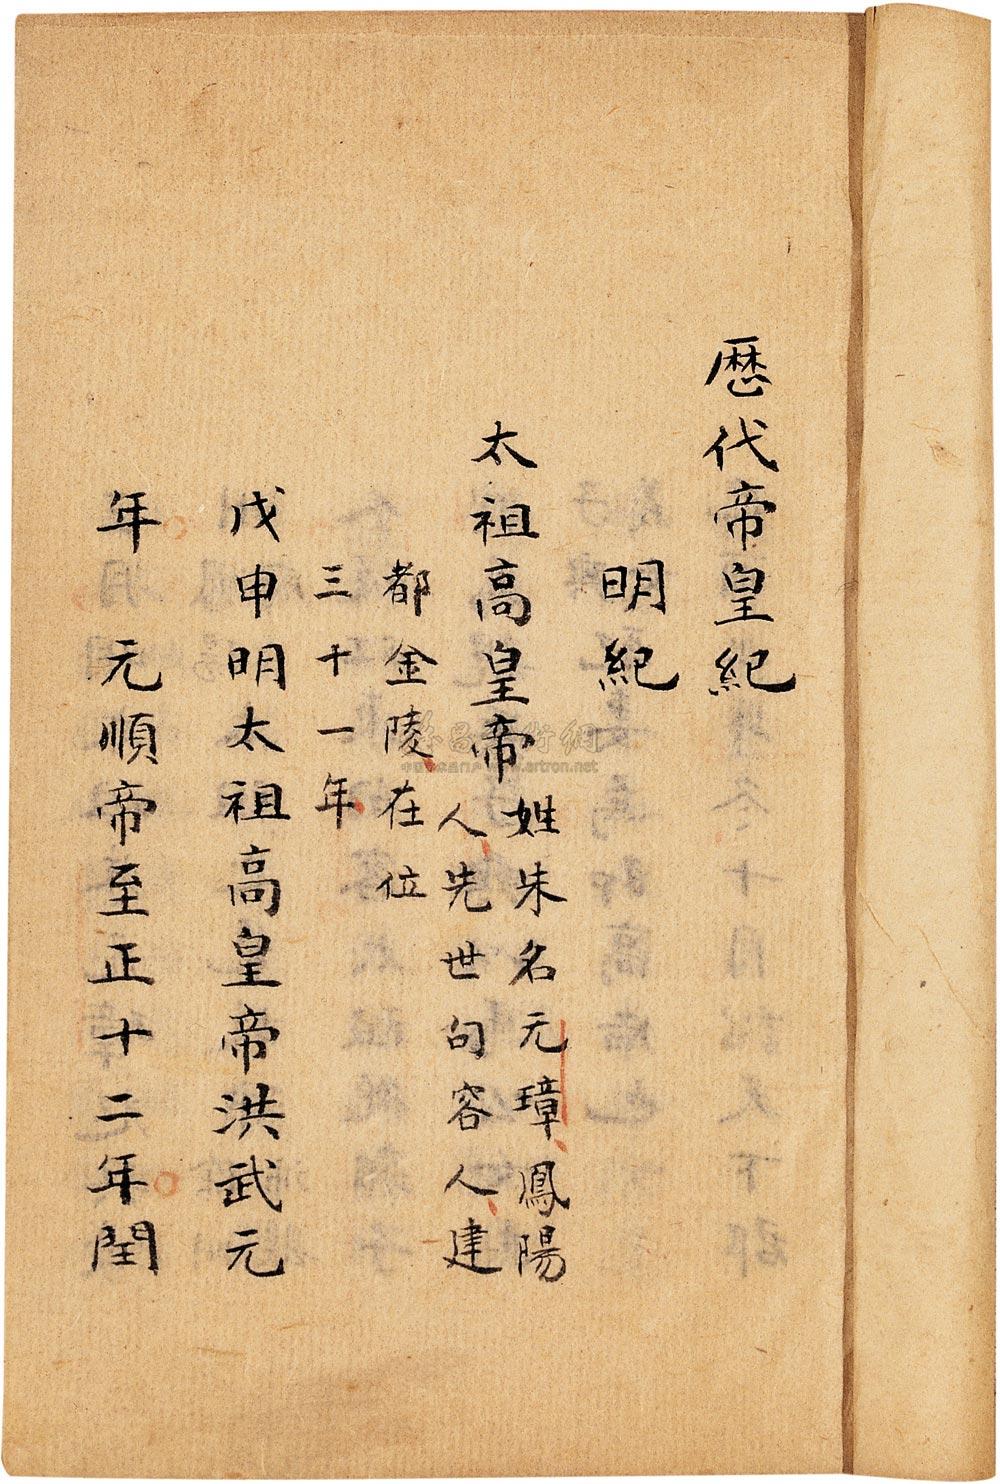 歷代帝皇紀
明紀
太祖高皇帝姓朱名元璋鳳陽
人先世句容人建
都金陵在位
三十一年
戊申明太祖高皇帝洪武元
年元順帝至正十二年閏